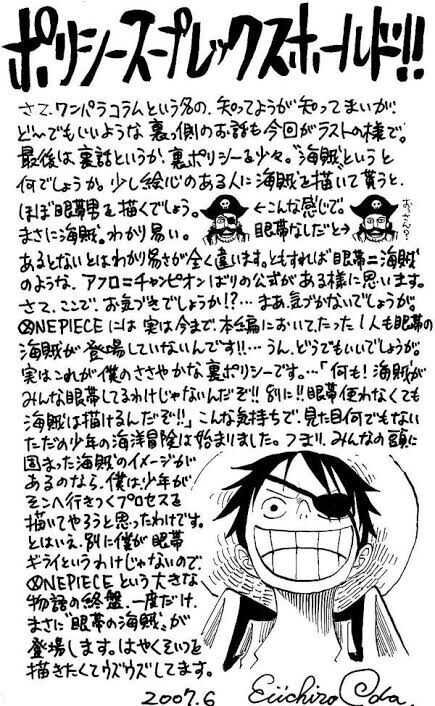 ポリシースープレックスホールド!!
さて、ワンパラコラムという名の、知ってようが知ってまいが、
ど〜でもいいような裏っ側のお話も今回がラストの様で。
最後は裏話というか、裏ポリシーを少々。“海賊”というと
何でしょうか。少し絵心のある人に海賊を描いて貰うと、
ほぼ眼帯男を描くでしょう。
←こんな感じで。
おっさん?
まさに海賊。わかり易い。
眼帯なしだと→
あるとないとはわかり易さが全く違います。ともすれば“眼帯=海賊”
のような、アフロ=チャンピオンばりの公式がある様に思います。
さて、ここで、お気づきでしょうか!?…まあ気づかないでしょうが。
ONEPIECEには実は今まで、本編において、たった1人も眼帯の
海賊が登場していないんです!!…うん、どうでもいいでしょうが。
実はこれが僕のささやかな裏ポリシーです。…「何も!海賊が
みんな眼帯してるわけじゃないんだぞ!!別に!!眼帯使わなくても
海賊は描けるんだぞ!!」こんな気持ちで、見た目何でもない
ただの少年の海洋冒険は始まりました。つまり、みんなの頭に
固まった海賊のイメージが
あるのなら、僕は、少年が
そこへ行きつくプロセスを
描いてやろうと思ったわけです。
とはいえ、別に僕が眼帯
ギライというわけじゃないので、
ONEPIECEという大きな
物語の終盤、一度だけ、
まさに“眼帯の海賊”が
登場します。はやくそいつを
描きたくてウズウズしてます。
2007.6
Eiichiro Oda.